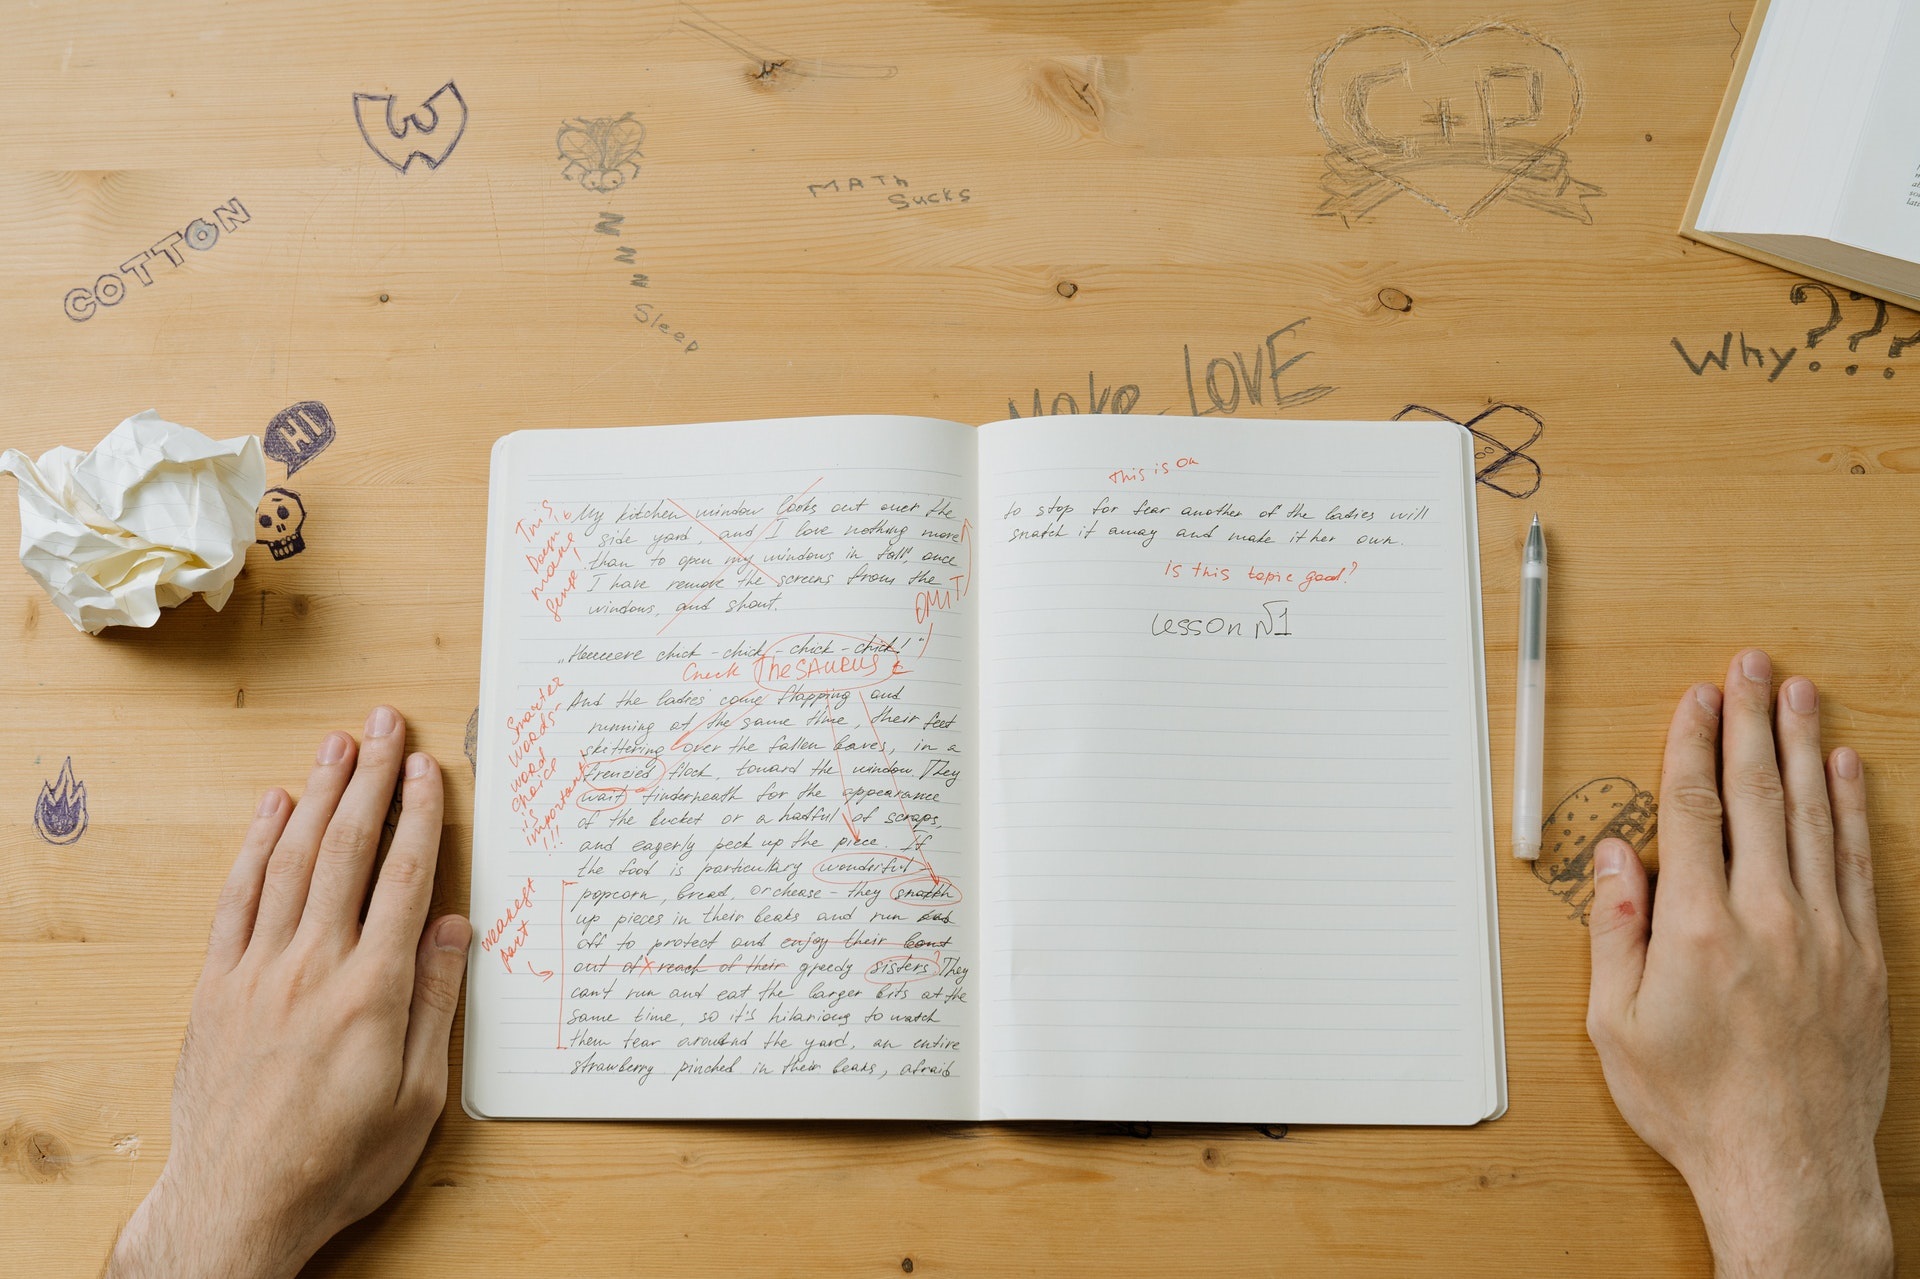 COTTON
W
MATH
Sucks
C+P
Z
Z
Z
Z
Sleep
Why???
Make LOVE
HI
This
Doesn't
make
sense!
My kitchen window looks out over the
side yard, and I love nothing more
than to open my windows in fall, once
I have remove the screens from the
windows, and shout.
OMIT
"Heeeere chick - chick - chick - chick!"
Check THESAURUS
Smarter
words -
word
choice
is
important
!!!
And the ladies come flapping and
running at the same time, their feet
skittering over the fallen leaves, in a
frenzied flock, toward the window. They
wait underneath for the appearance
of the bucket or a hadful of scraps,
and eagerly peck up the piece. If
the food is particullary wonderful -
popcorn, bread, or chease - they snatch
up pieces in their beaks and run
off to protect and enjoy their
out of reach of their greedy sisters. They
can't run and eat the larger bits at the
same time, so it's hilariong to watch
them tear around the yard, an entire
strawberry pinched in their beaks, afraid
weakest
part
This is ok
to stop for fear another of the ladies will
snatch it away and make it her own.
is this topic good?
Lesson №1